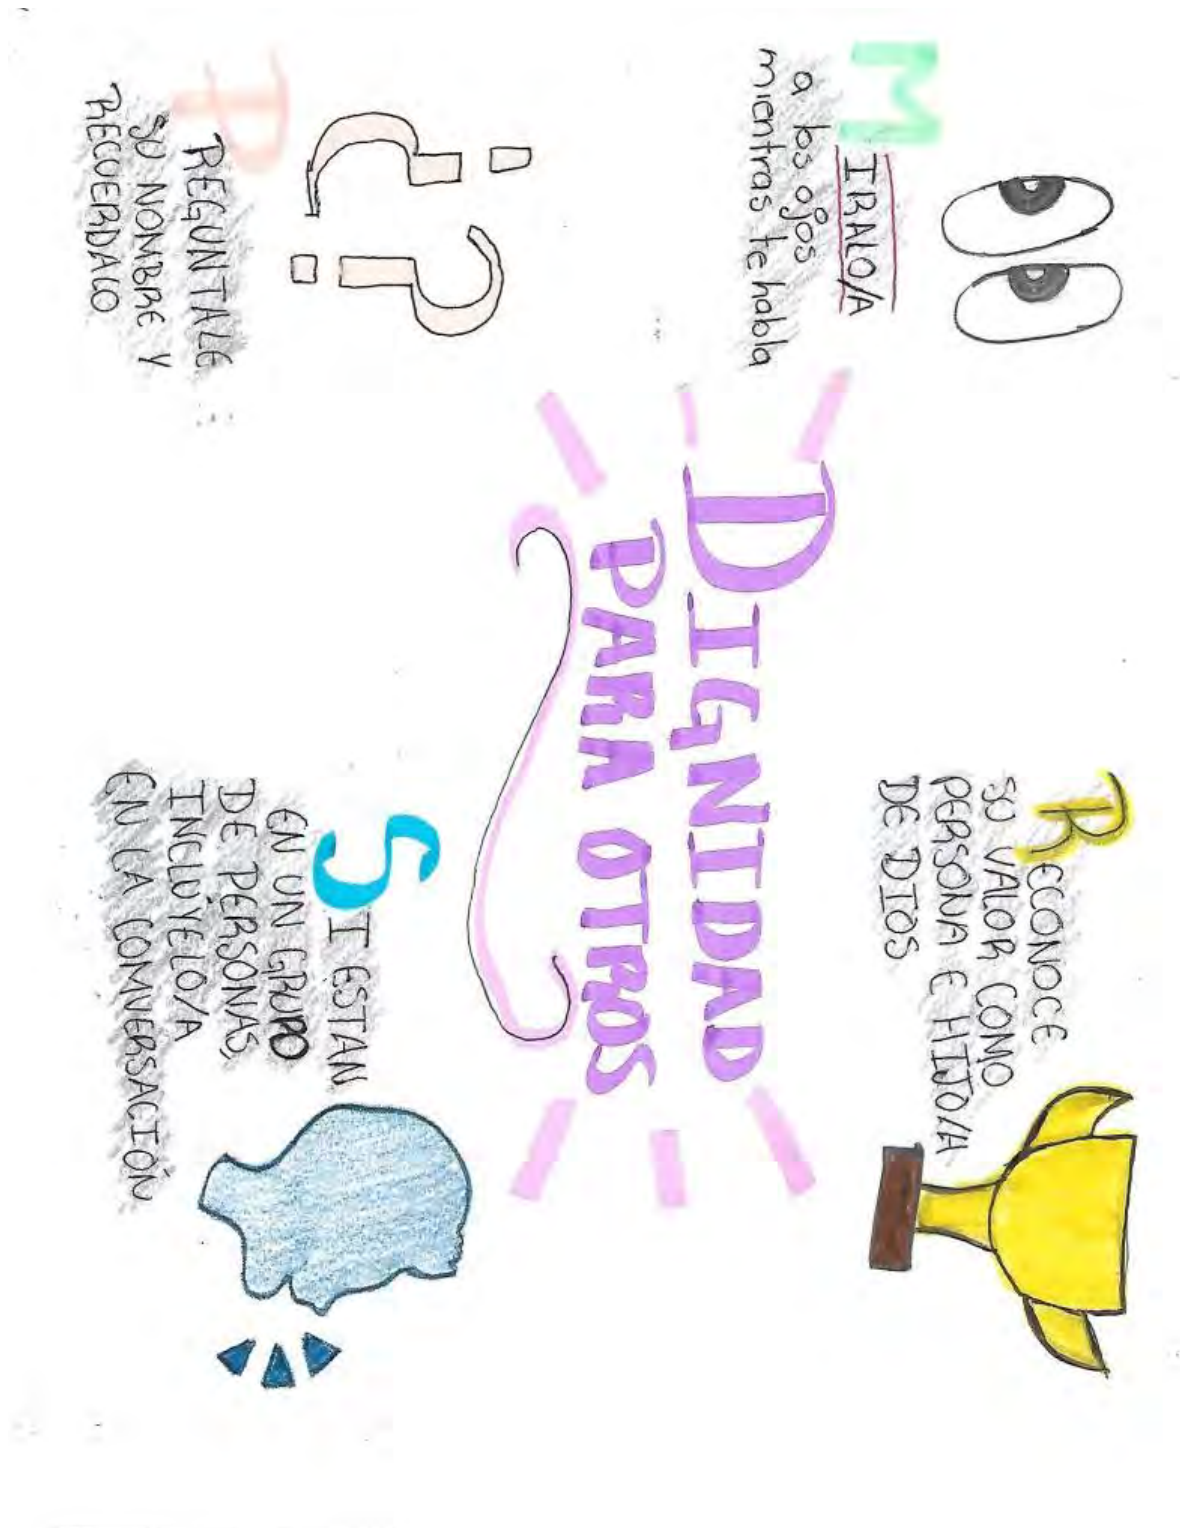 MIRALO/A
a los ojos
mientras te habla
RECONOCE
SU VALOR COMO
PERSONA E HIJO/A
DE DIOS
DIGNIDAD
PARA OTROS
¿?
PREGUNTALE
SU NOMBRE Y
RECUERDALO
SI ESTAN
EN UN GRUPO
DE PERSONAS,
INCLUYELO/A
EN LA COMVERSACIÓN